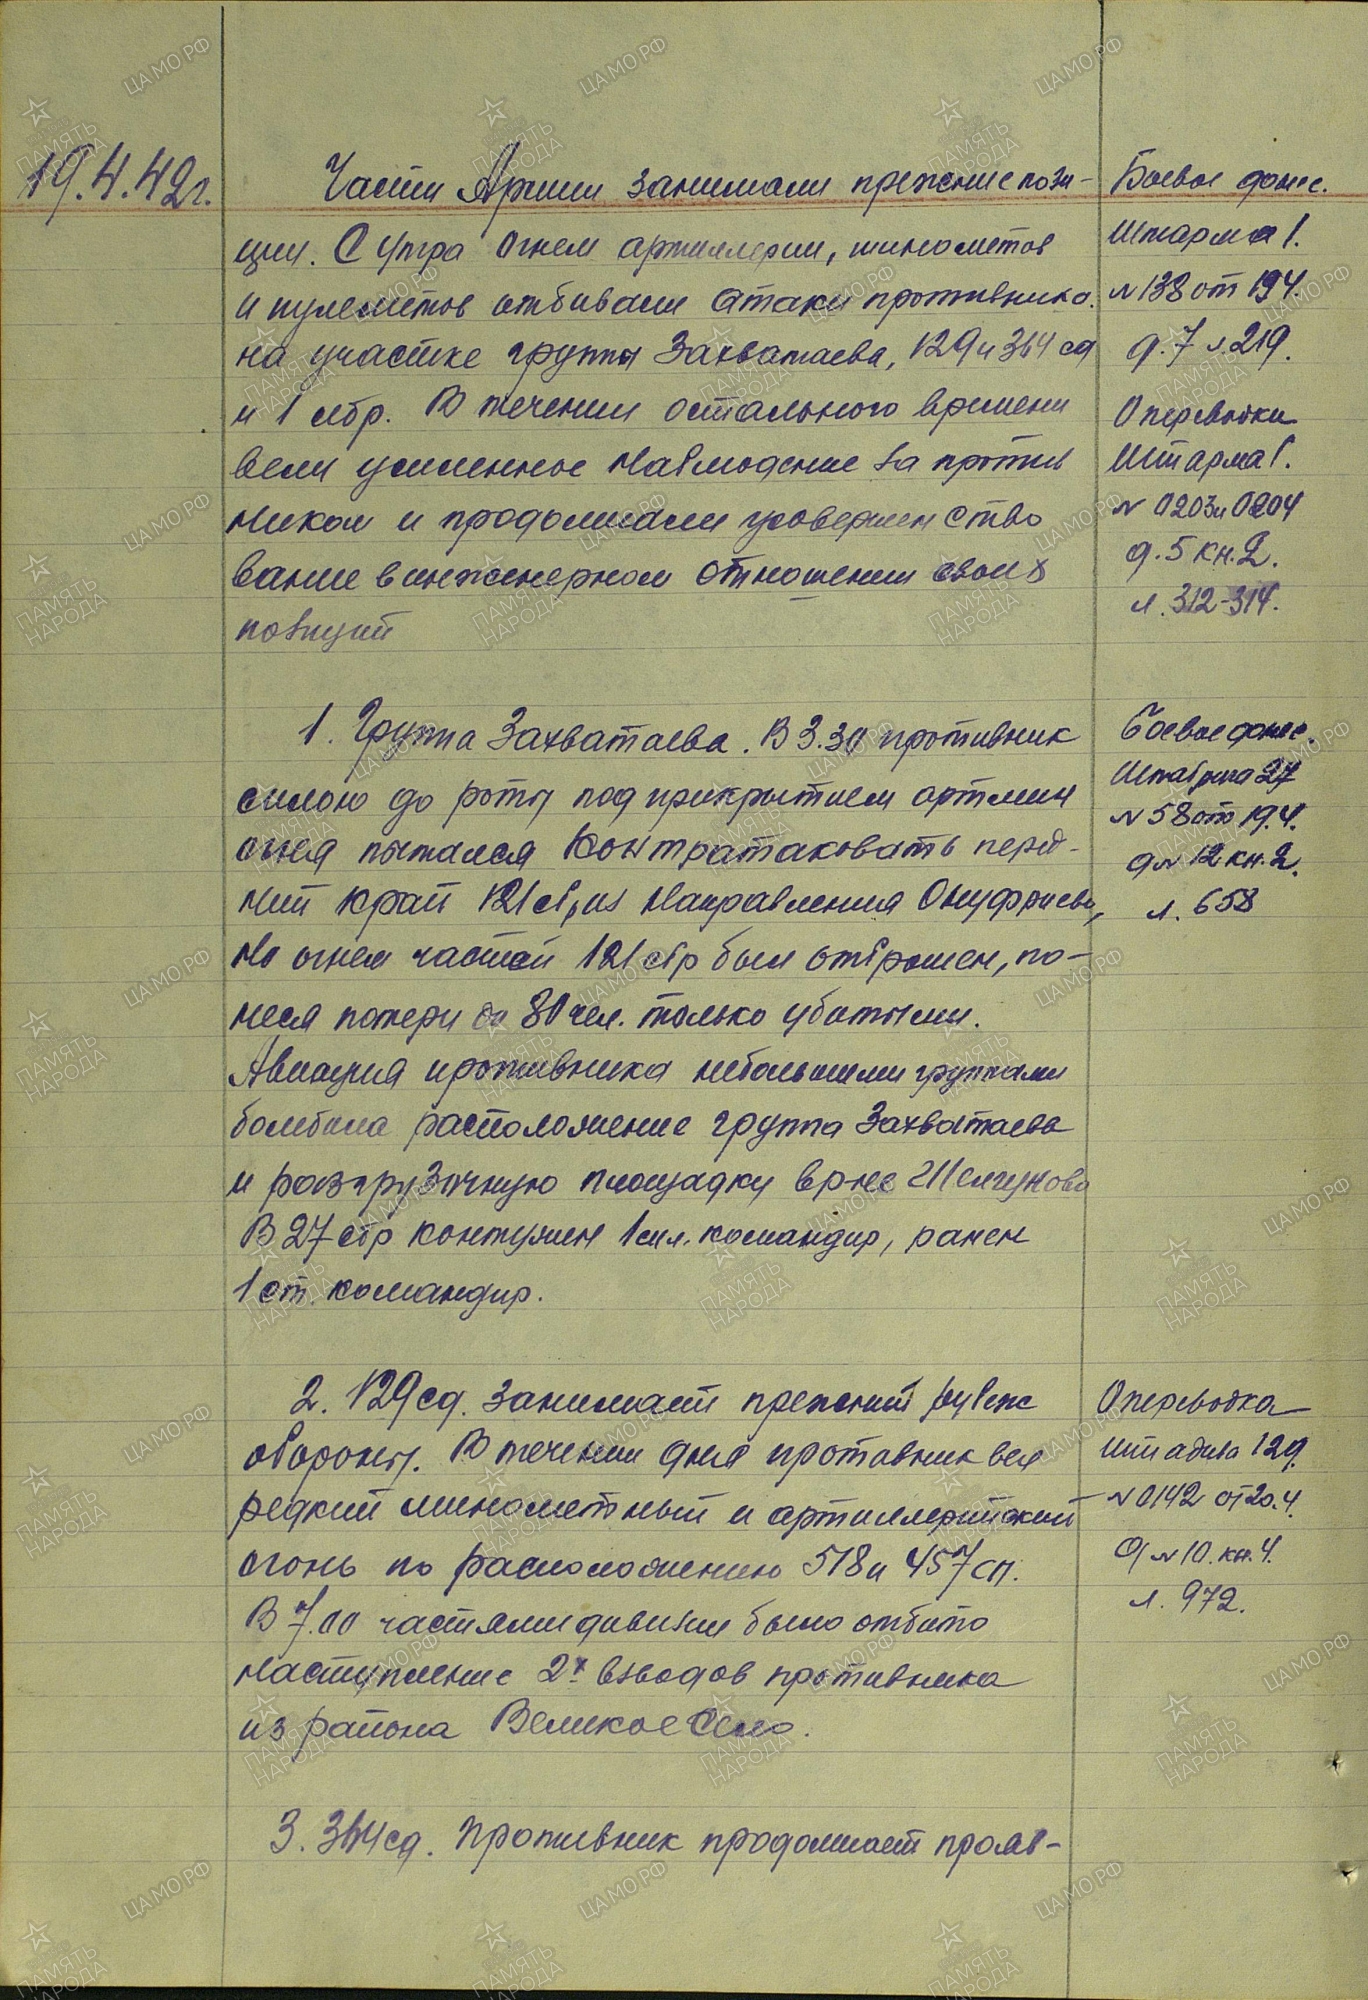 19.4.42г.
Части Армии занимали прежние пози-
ции. С утра огнем артиллерии, минометов
и пулеметов отбивали атаки противника
на участке группы Захватаева, 129 и 364 сд
и 1 сбр. В течении остального времени
вели усиленное наблюдение за против
ником и продолжали усовершенство
вание в инженерном отношении своих
позиций
1. Группа Захватаева. В 3.30 противник
силою до роты под прикрытием артмин
огня пытался контратаковать перед-
ний край 121 сбр, из направления Онуфриево,
но огнем частей 121 сбр был отброшен, по-
неся потери до 80 чел. только убитыми.
Авиация противника небольшими группами
бомбила расположение группа Захватаева
и разгрузочную площадку в р-не Шелгуново
В 27 сбр контужен 1 мл. командир, ранен
1 ст. командир.
2. 129 сд. занимает прежний рубеж
обороны. В течении дня противник вел
редкий минометный и артиллерийский
огонь по расположению 518 и 457 сп.
В 7.00 частями дивизии было отбито
наступление 2х взводов противника
из района Великое Село.
3. 364 сд. Противник продолжает прояв-
Боевое донес.
Штарма 1.
№ 138 от 19.4.
д. 7 л. 219.
Оперсводки
Штарма 1.
№ 0203 и 0204
д. 5 кн. 2.
л. 312-314.
Боевое донес.
Штабрига 27
№ 58 от 19.4.
д № 12 кн. 2.
л. 658
Оперсводка
штадива 129.
№ 0142 от 20.4.
д № 10. кн. 4.
л. 972.
ЦАМО.РФ
ПАМЯТЬ
НАРОДА